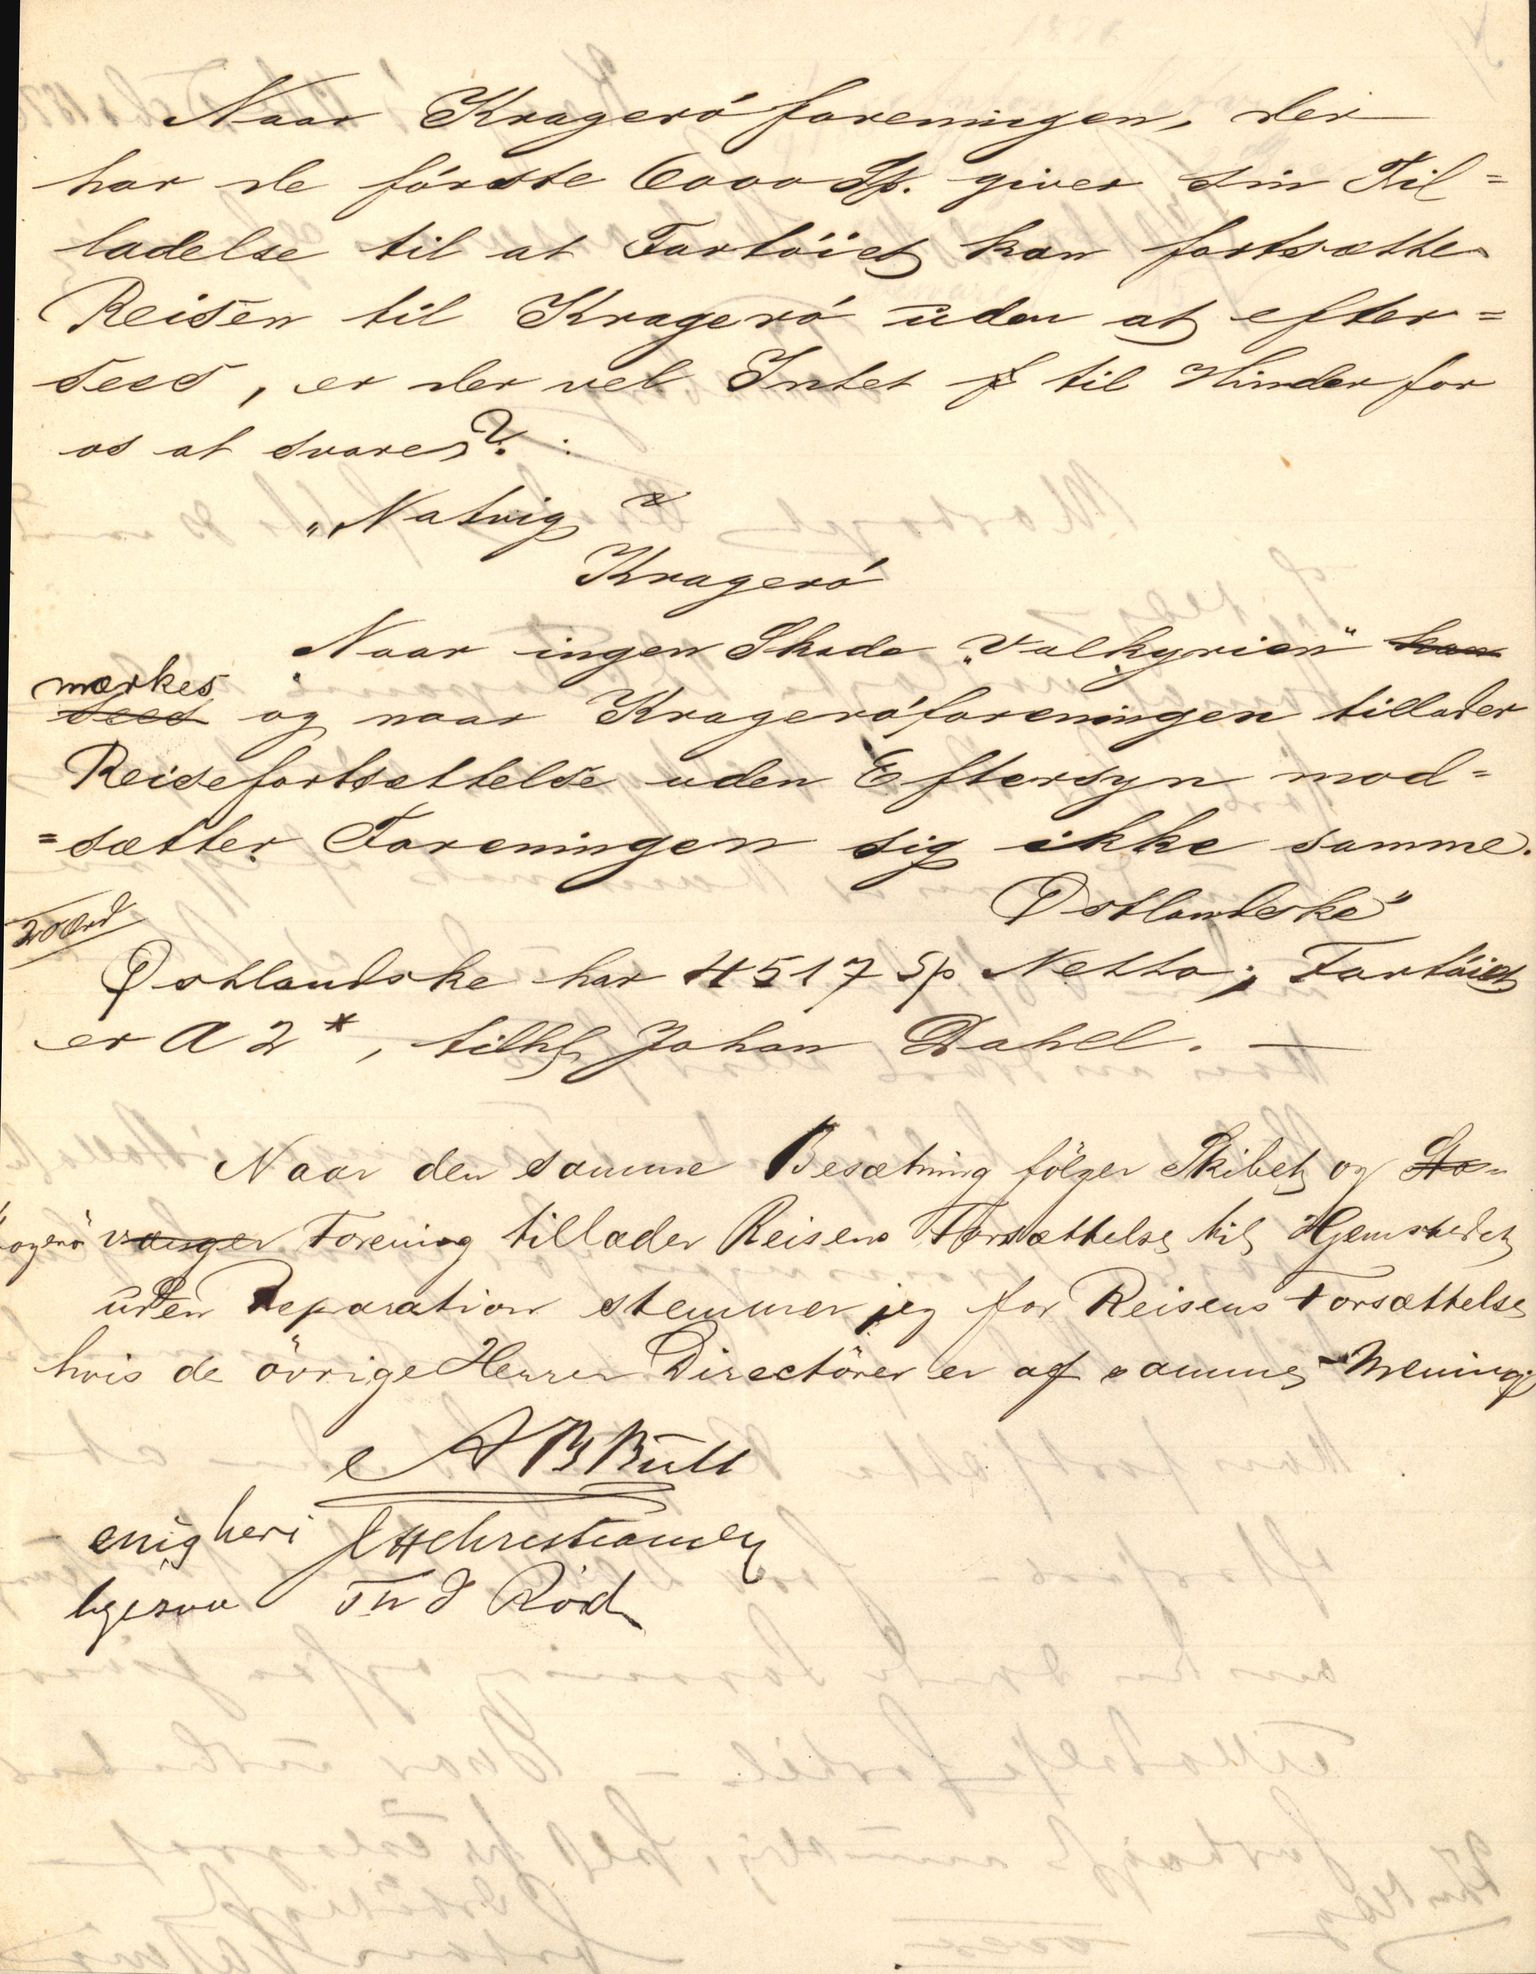 Naar Krageröforeningen, der
har de förste 6000 Sp. giver sin Til=
ladelse til at Fartöiet kan fortsætte
Reisen til Kragerö uden at efter=
sees, er der vel Intet til Hinder for
os at svare?:
„Natvig
Kragerö
Naar ingen Skade „Valkyrien" kan
mærkes
sees og naar Krageröforeningen tillader
Reisefortsættelse uden Eftersyn mod=
=sætter Foreningen sig ikke samme.
Østlandske"
20 Ord
Østlandske har 4517 Sp Netto; Fartöiet
er A 2*, tilh Johan Dahll. —
Naar den samme Besætning fölger Skibet og Sta-
vanger Forening tillader Reisens Forsættelse til Hjemstedet
uden Reparation stemmer jeg for Reisens Forsættelse
hvis de övrige Herrer Directörer er af samme Mening
A B Bull
enig heri J H Christiansen
ligesaa Th J Röd